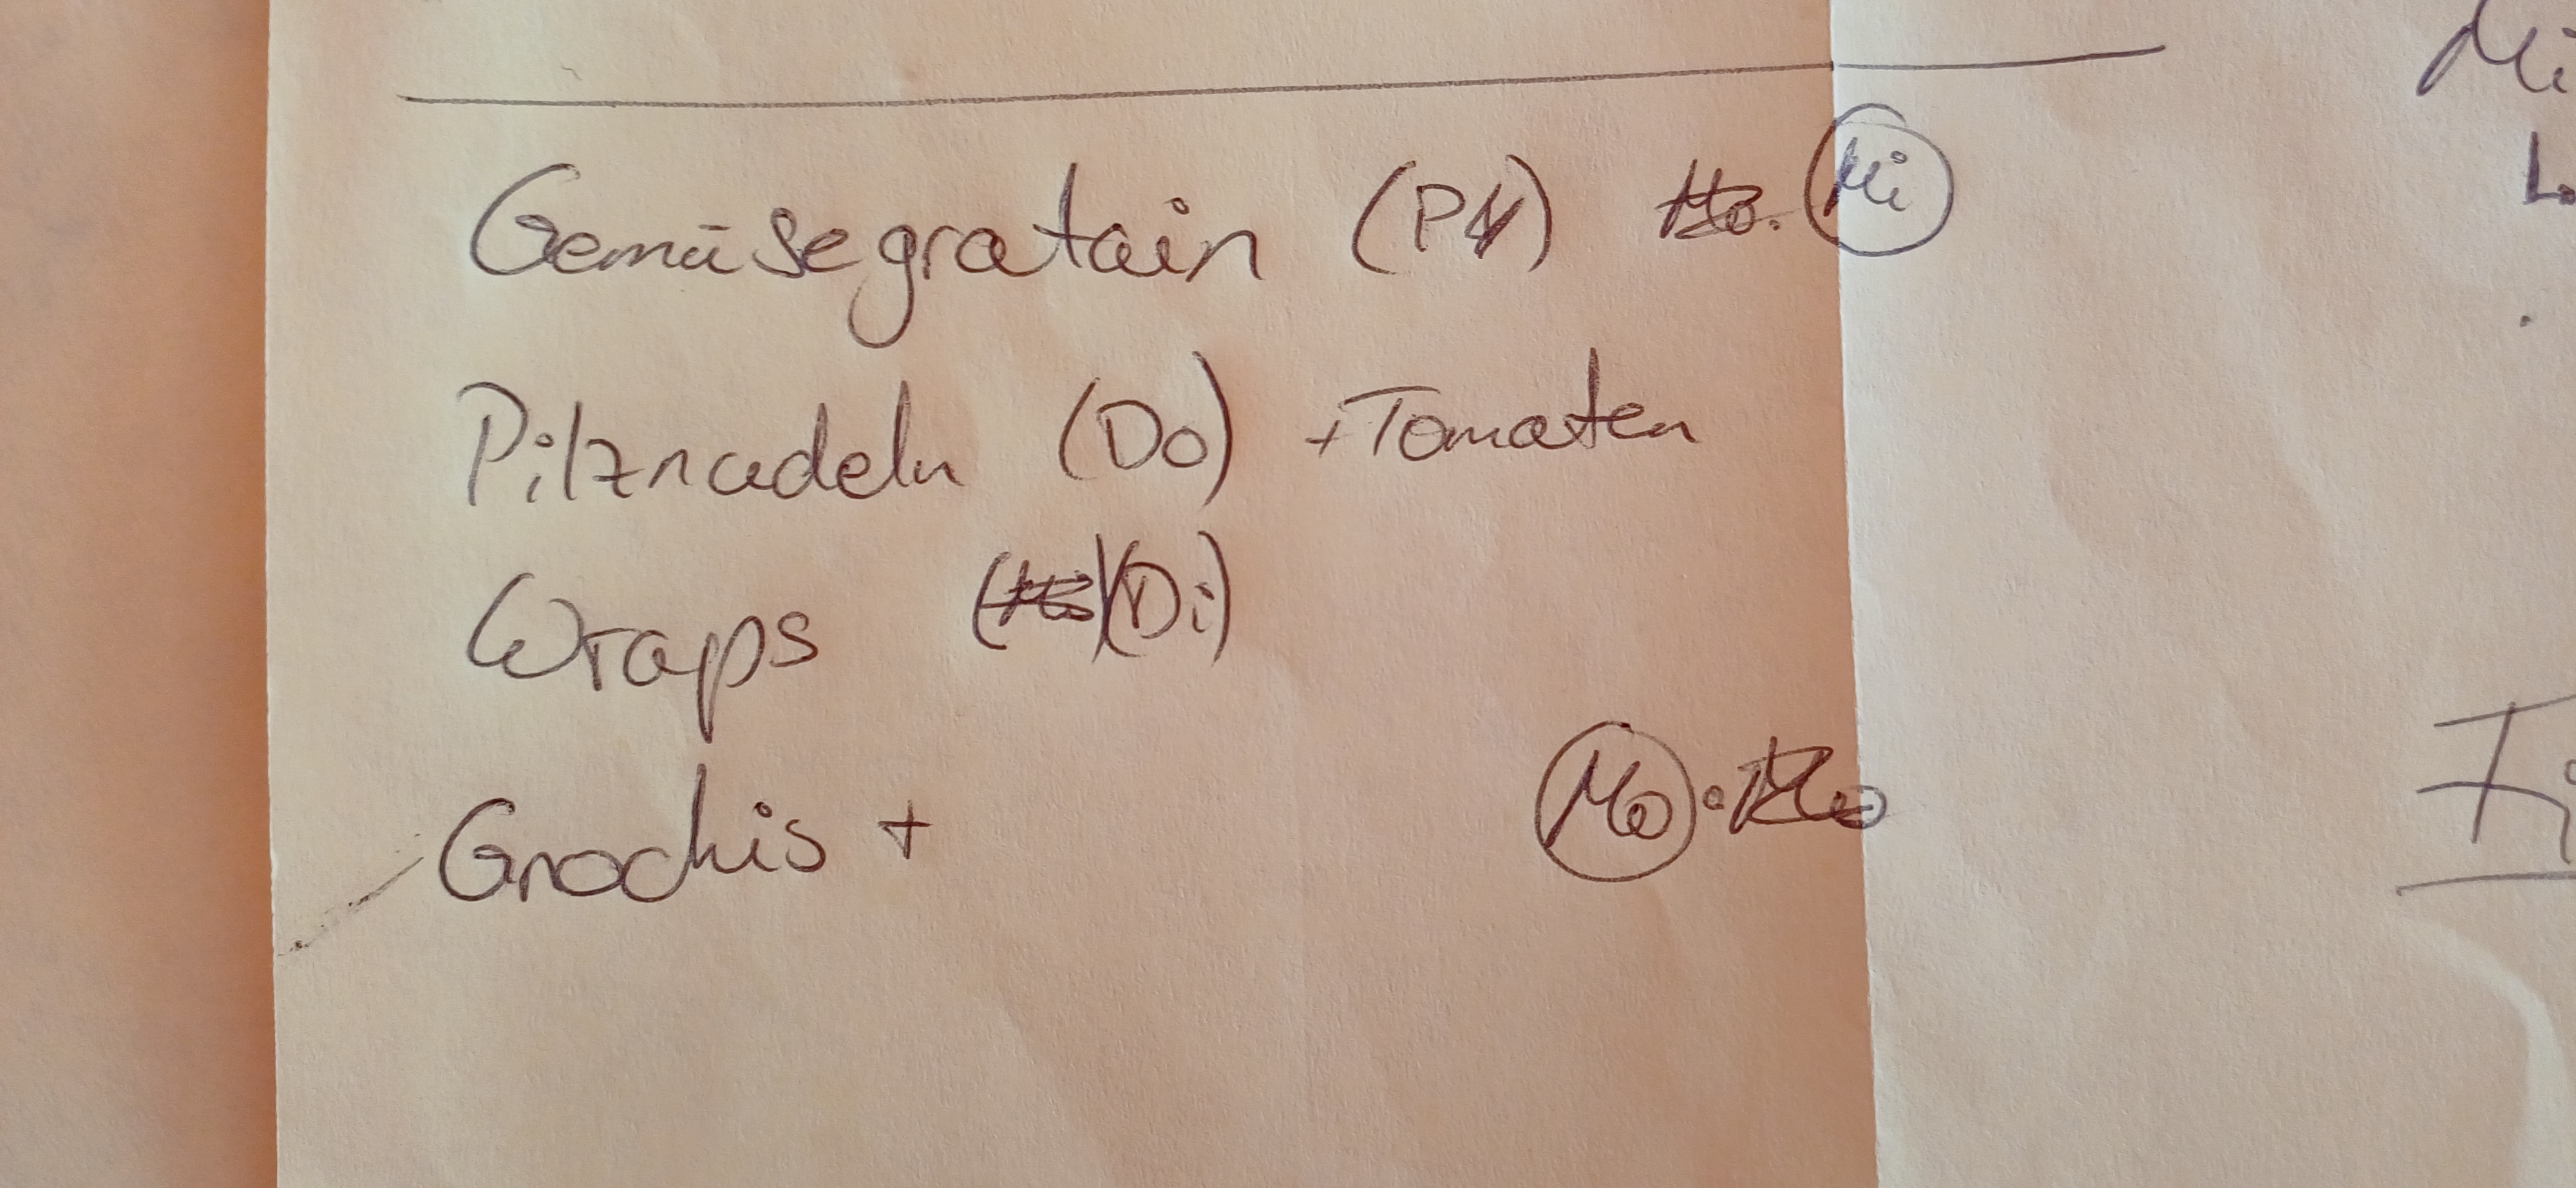 Gemüsegratain (PH) Mi
Pilznudeln (Do) + Tomaten
Wraps (Di)
Gnochis + Mo